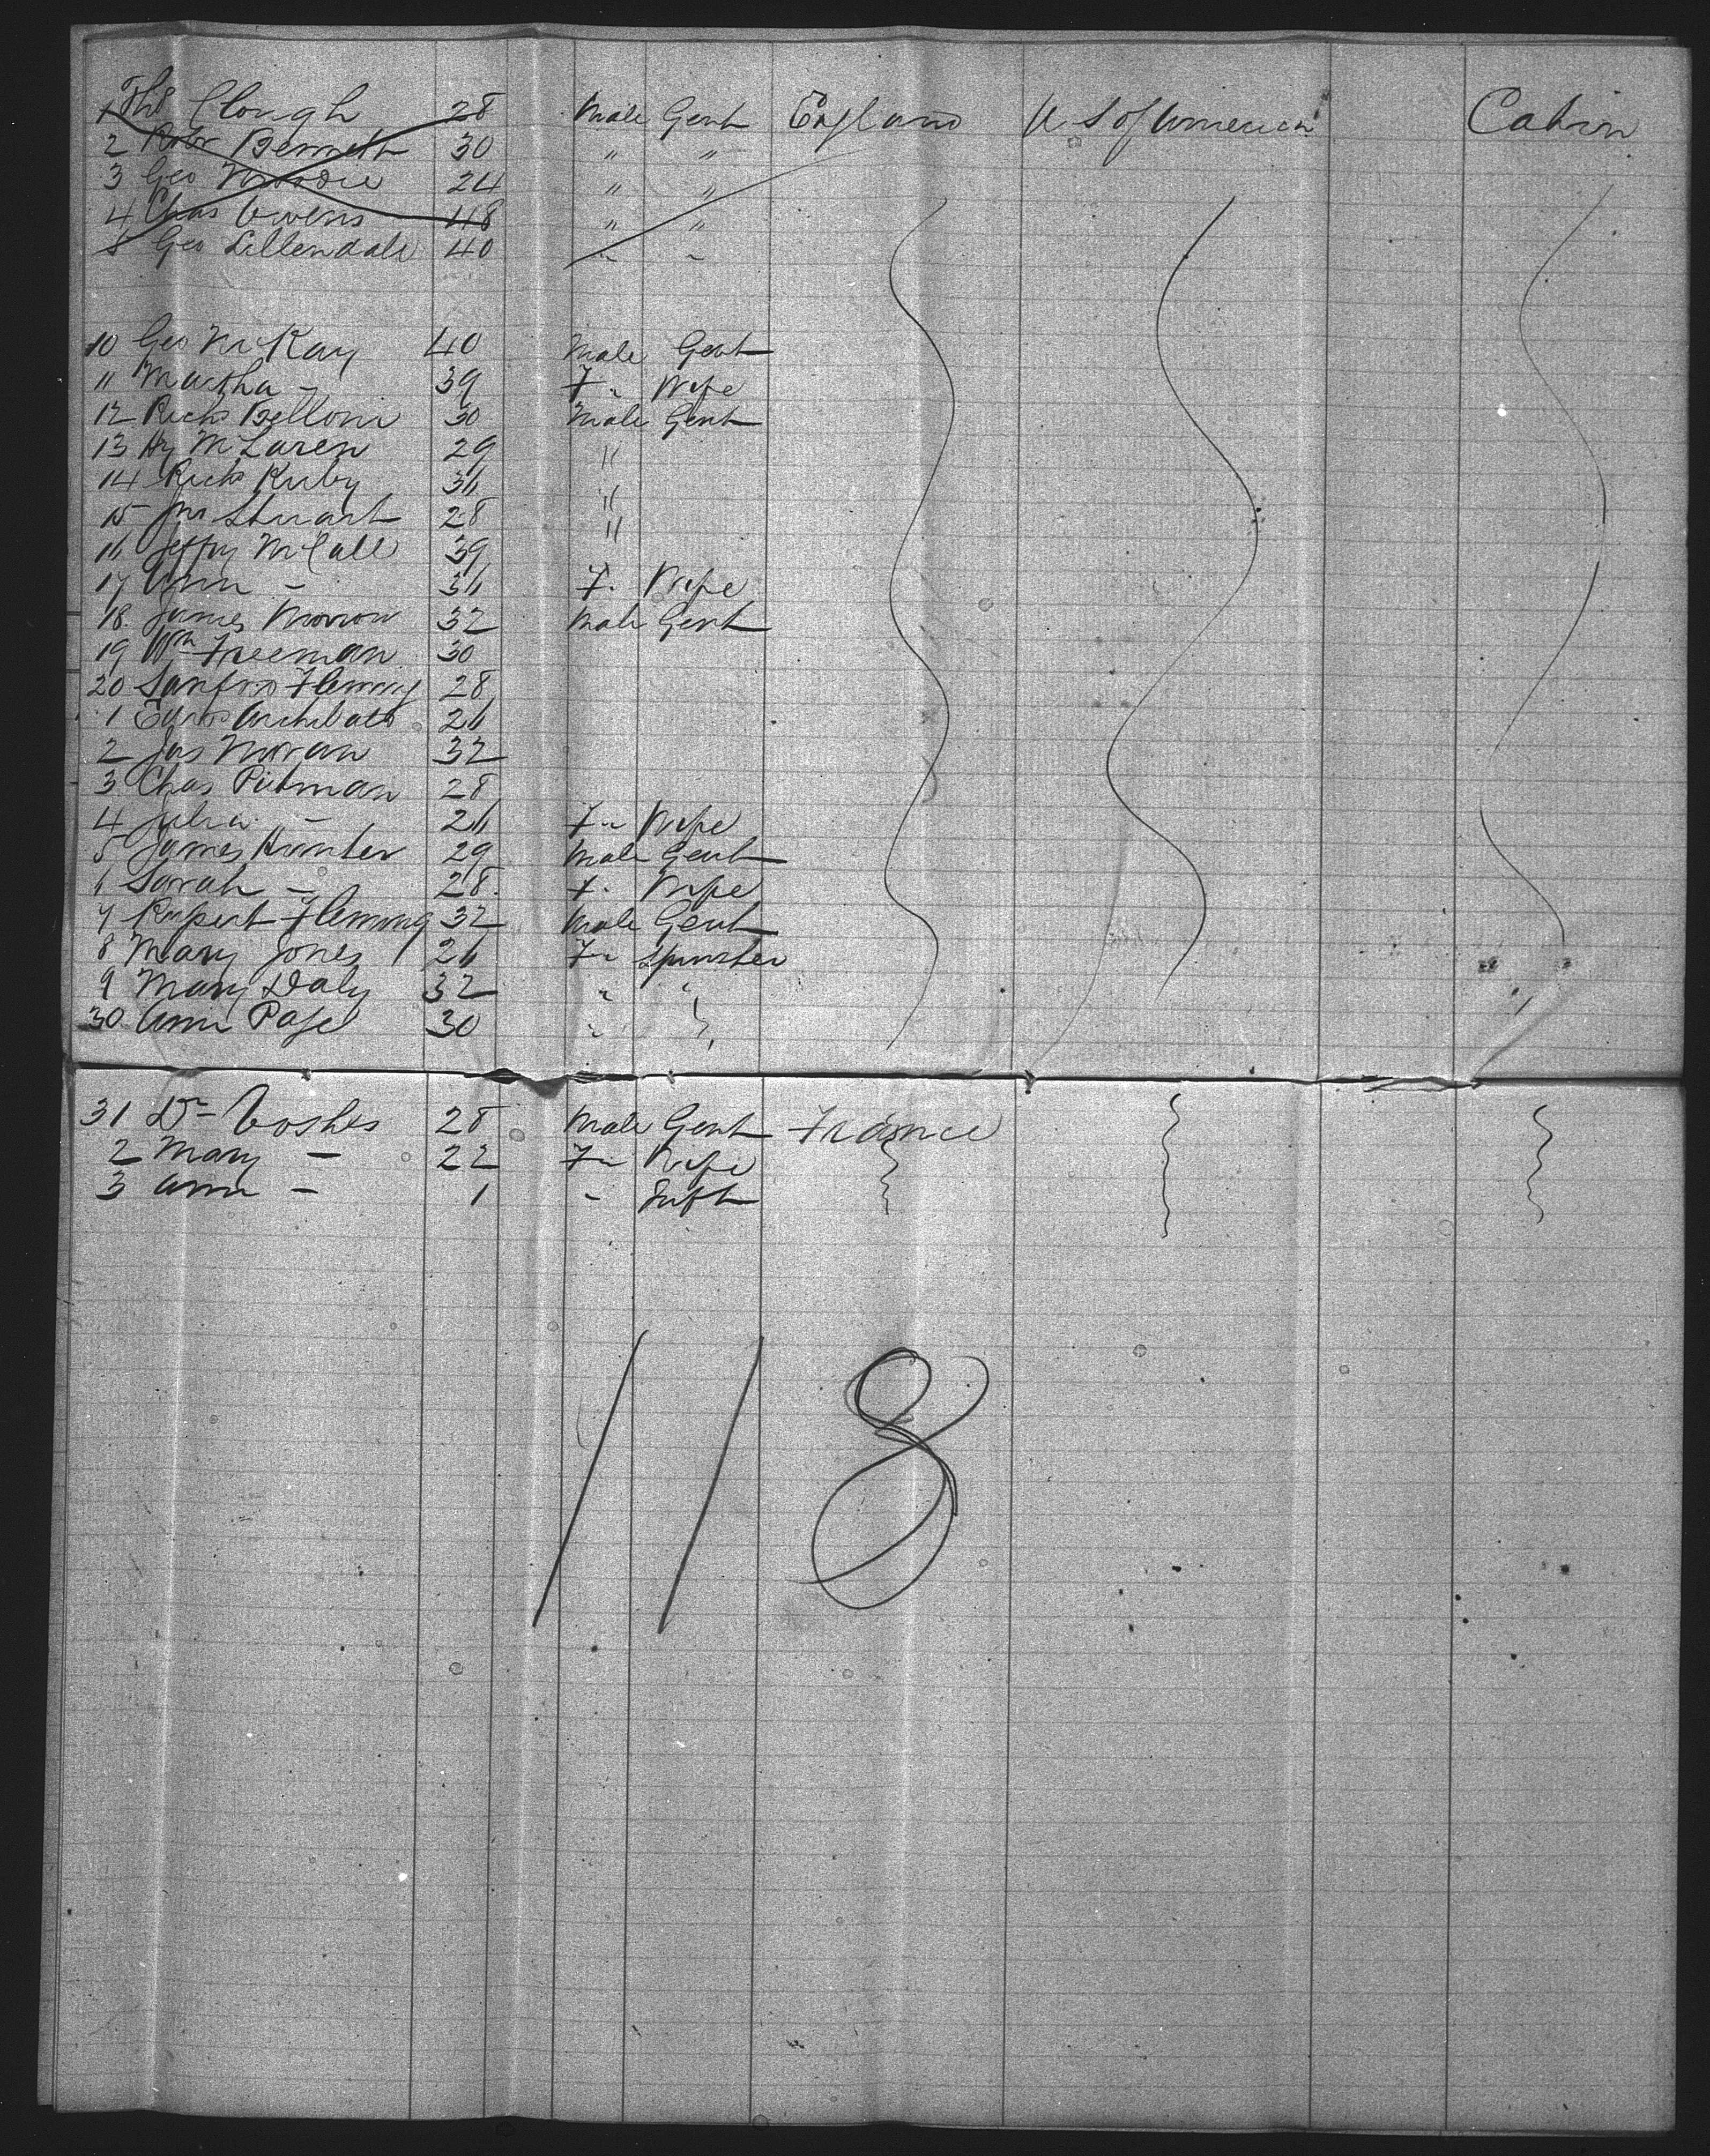 1 Thos Clough 28 Male Gent England U S of America Cabin
2 Robt Bennett 30 " "
3 Geo 24 " "
4 Chas Owens 48 " "
5 Geo Lillendale 40 " "
10 Geo McKay 40 Male Gent
11 Martha - 39 F " Wife
12 Richd Belloni 30 Male Gent
13 Hy McLaren 29 "
14 Richd Kirby 36 "
15 Jno Stuart 28 "
16 Jeffry McCall 39
17 Ann - 36 F. Wife
18. James Morrow 32 Male Gent
19 Wm Freeman 30
20 Sanford Fleming 28
1 Edwd Archibald 26
2 Jas Moran 32
3 Chas Putman 28
4 Julia - 26 F " Wife
5 James Hunter 29 Male Gent
6 Sarah - 28. F. Wife
7 Rupert Fleming 32 Male Gent
8 Mary Jones 26 F " Spinster
9 Mary Daly 32 " "
30 Ann Page 30 " "
31 Dr 28 Male Gent France
2 Mary - 22 F " Wife
3 Ann - 1 " Inft
118